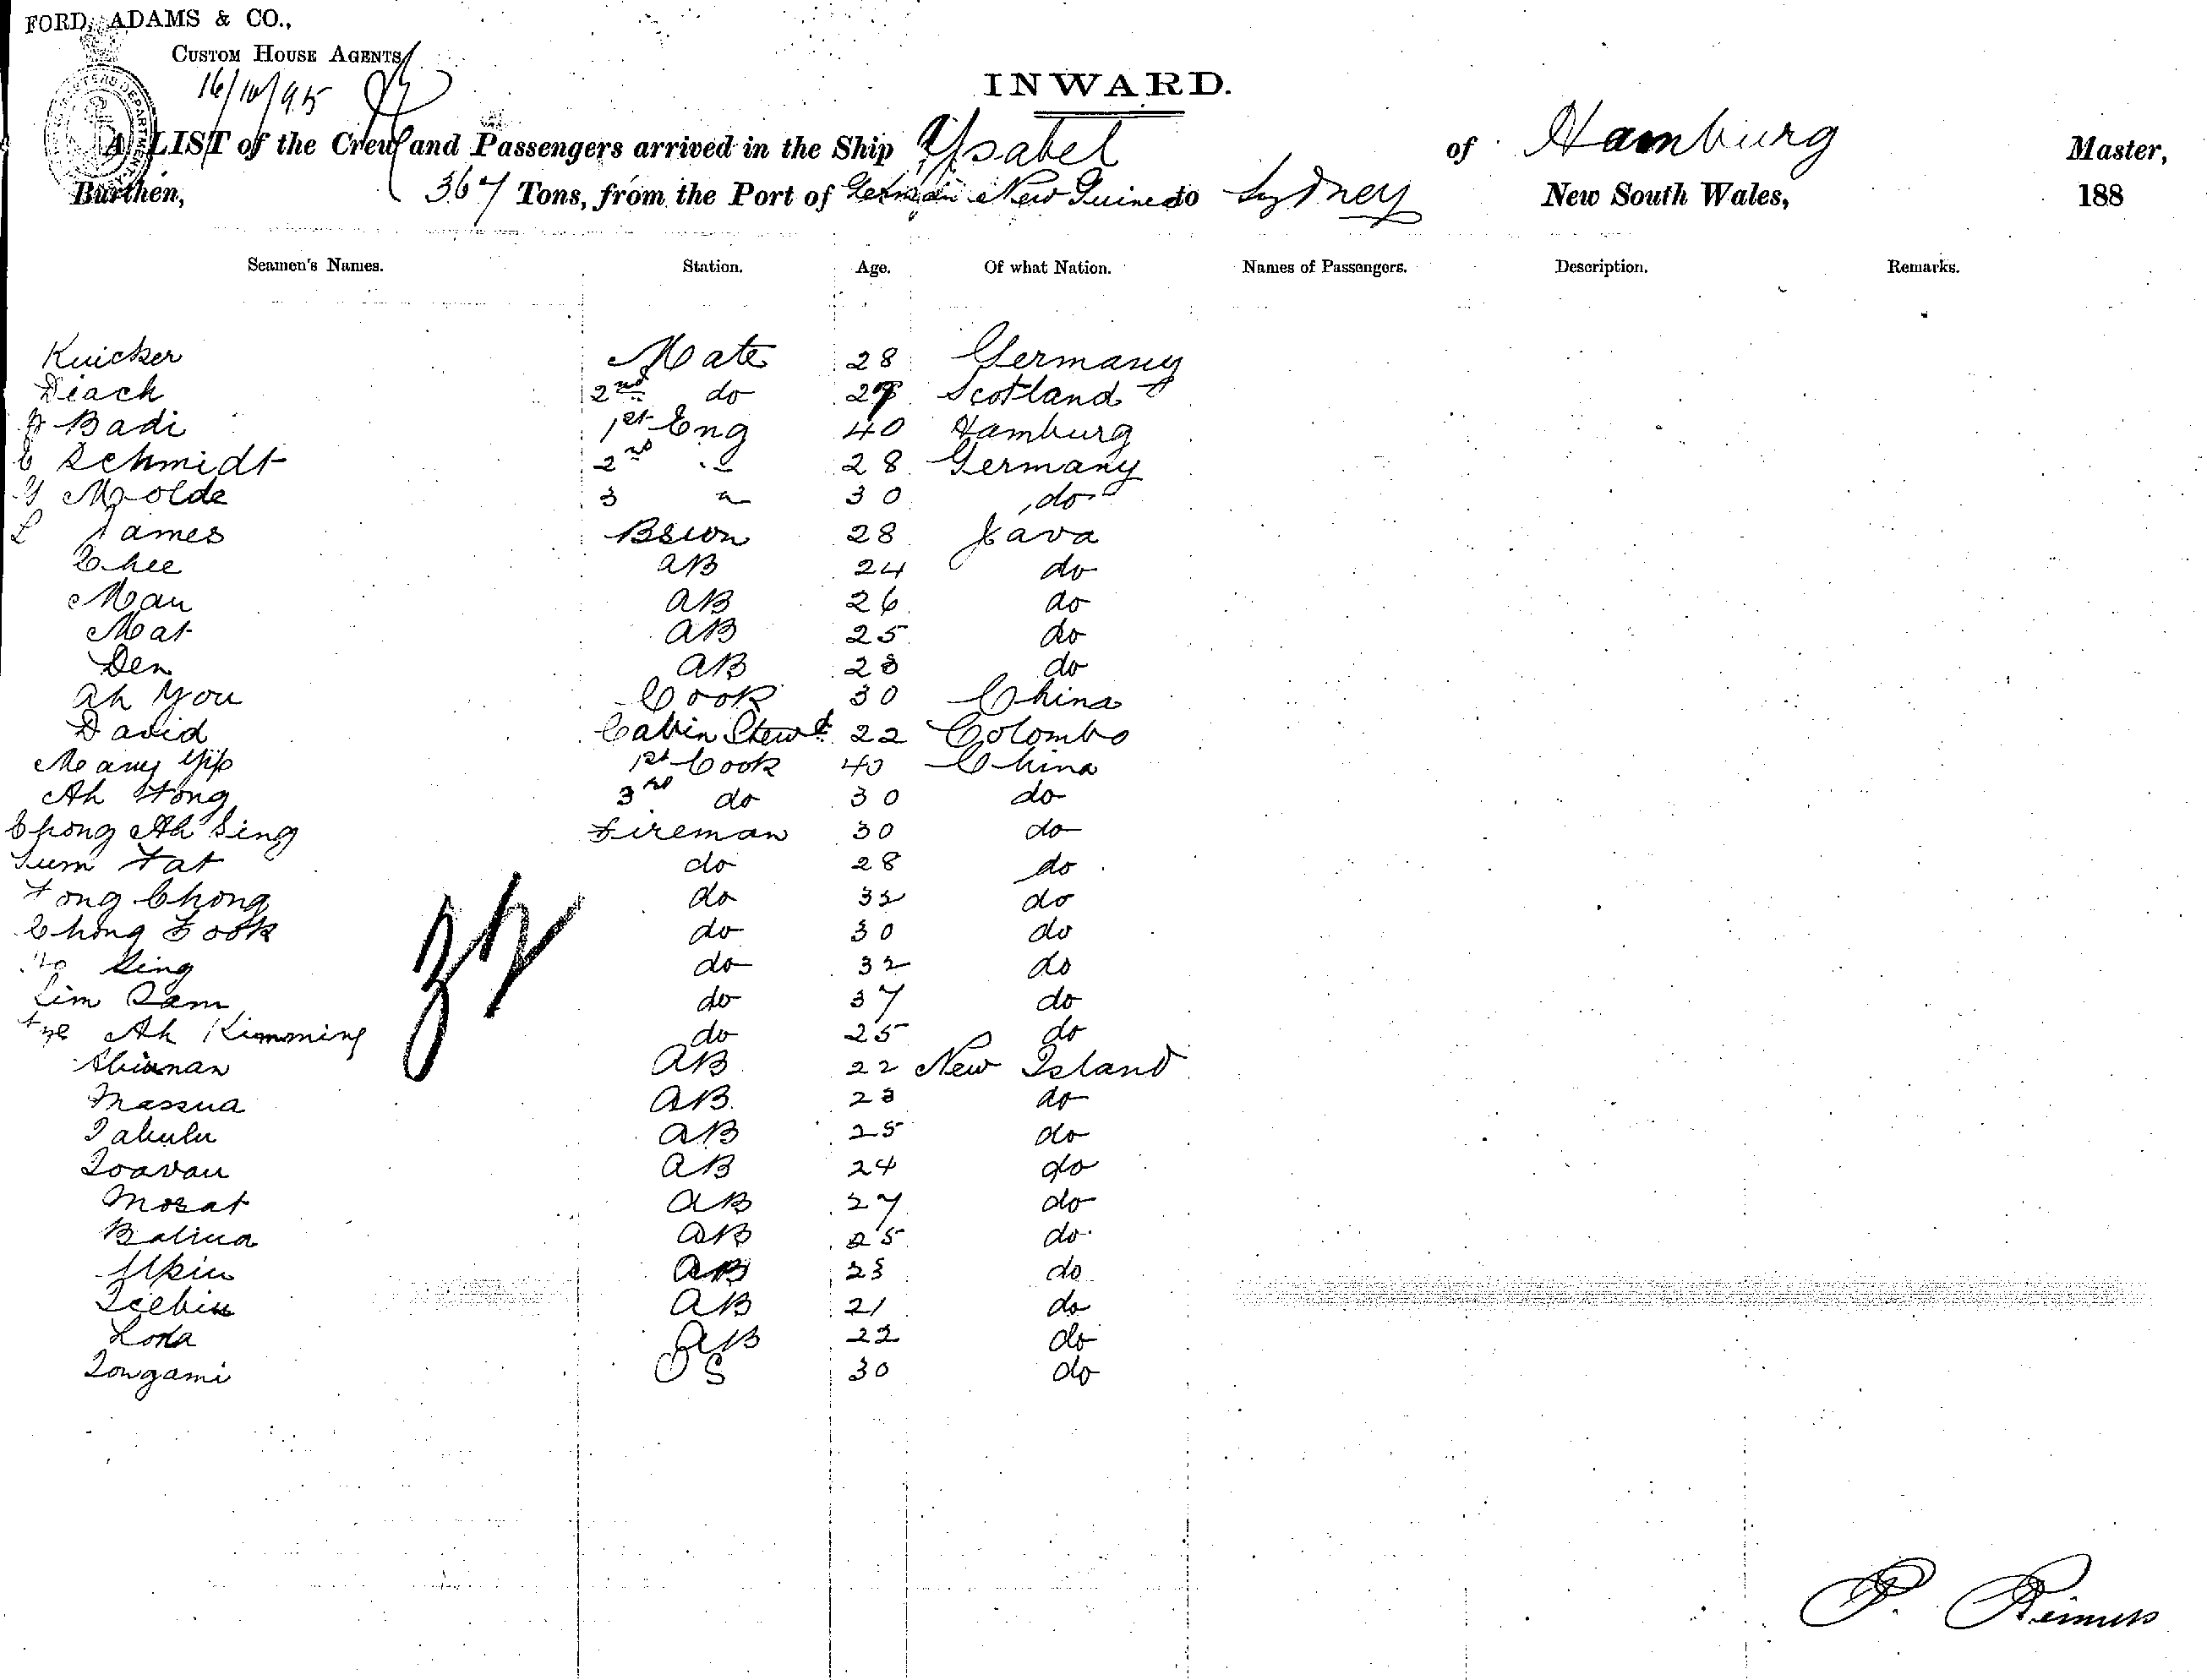 FORD, ADAMS & CO.,
CUSTOM HOUSE AGENTS
16/10/95
INWARD.
A LIST of the Crew and Passengers arrived in the Ship Ysabel of Hamburg Master,
Burthen, 367 Tons, from the Port of German New Guinea to Sydney New South Wales, 188
Seamen's Names. Station. Age. Of what Nation. Names of Passengers. Description. Remarks.
Kuicker Mate 28 Germany
Diach 2nd do Scotland
Badi 1st Eng 40 Hamburg
Schmidt 2nd 28 Germany
Molde 3 30 do
L James Bswn 28 Java
Chee AB 24 do
Mau AB 26 do
Mat AB 25 do
Den AB 28 do
Ah You Cook 30 China
David Cabin Stewd 22 Colombo
Yip 1st Cook 40 China
Ah 3rd do 30 do
Chong Ah Sing Fireman 30 do
Sum Fat do 28 do
Fong Chong do 32 do
Chong Fook do 30 do
Sing do 32 do
Lim Sam do 37 do
Ah Kimming do 25 do
AB 22 New Island
Massua AB 23 do
Tabulu AB 25 do
Toavau AB 24 do
Mosat AB 27 do
Balina AB 25 do
AB 23 do
AB 21 do
Lona AB 22 do
Towgami OS 30 do
P. Reimers